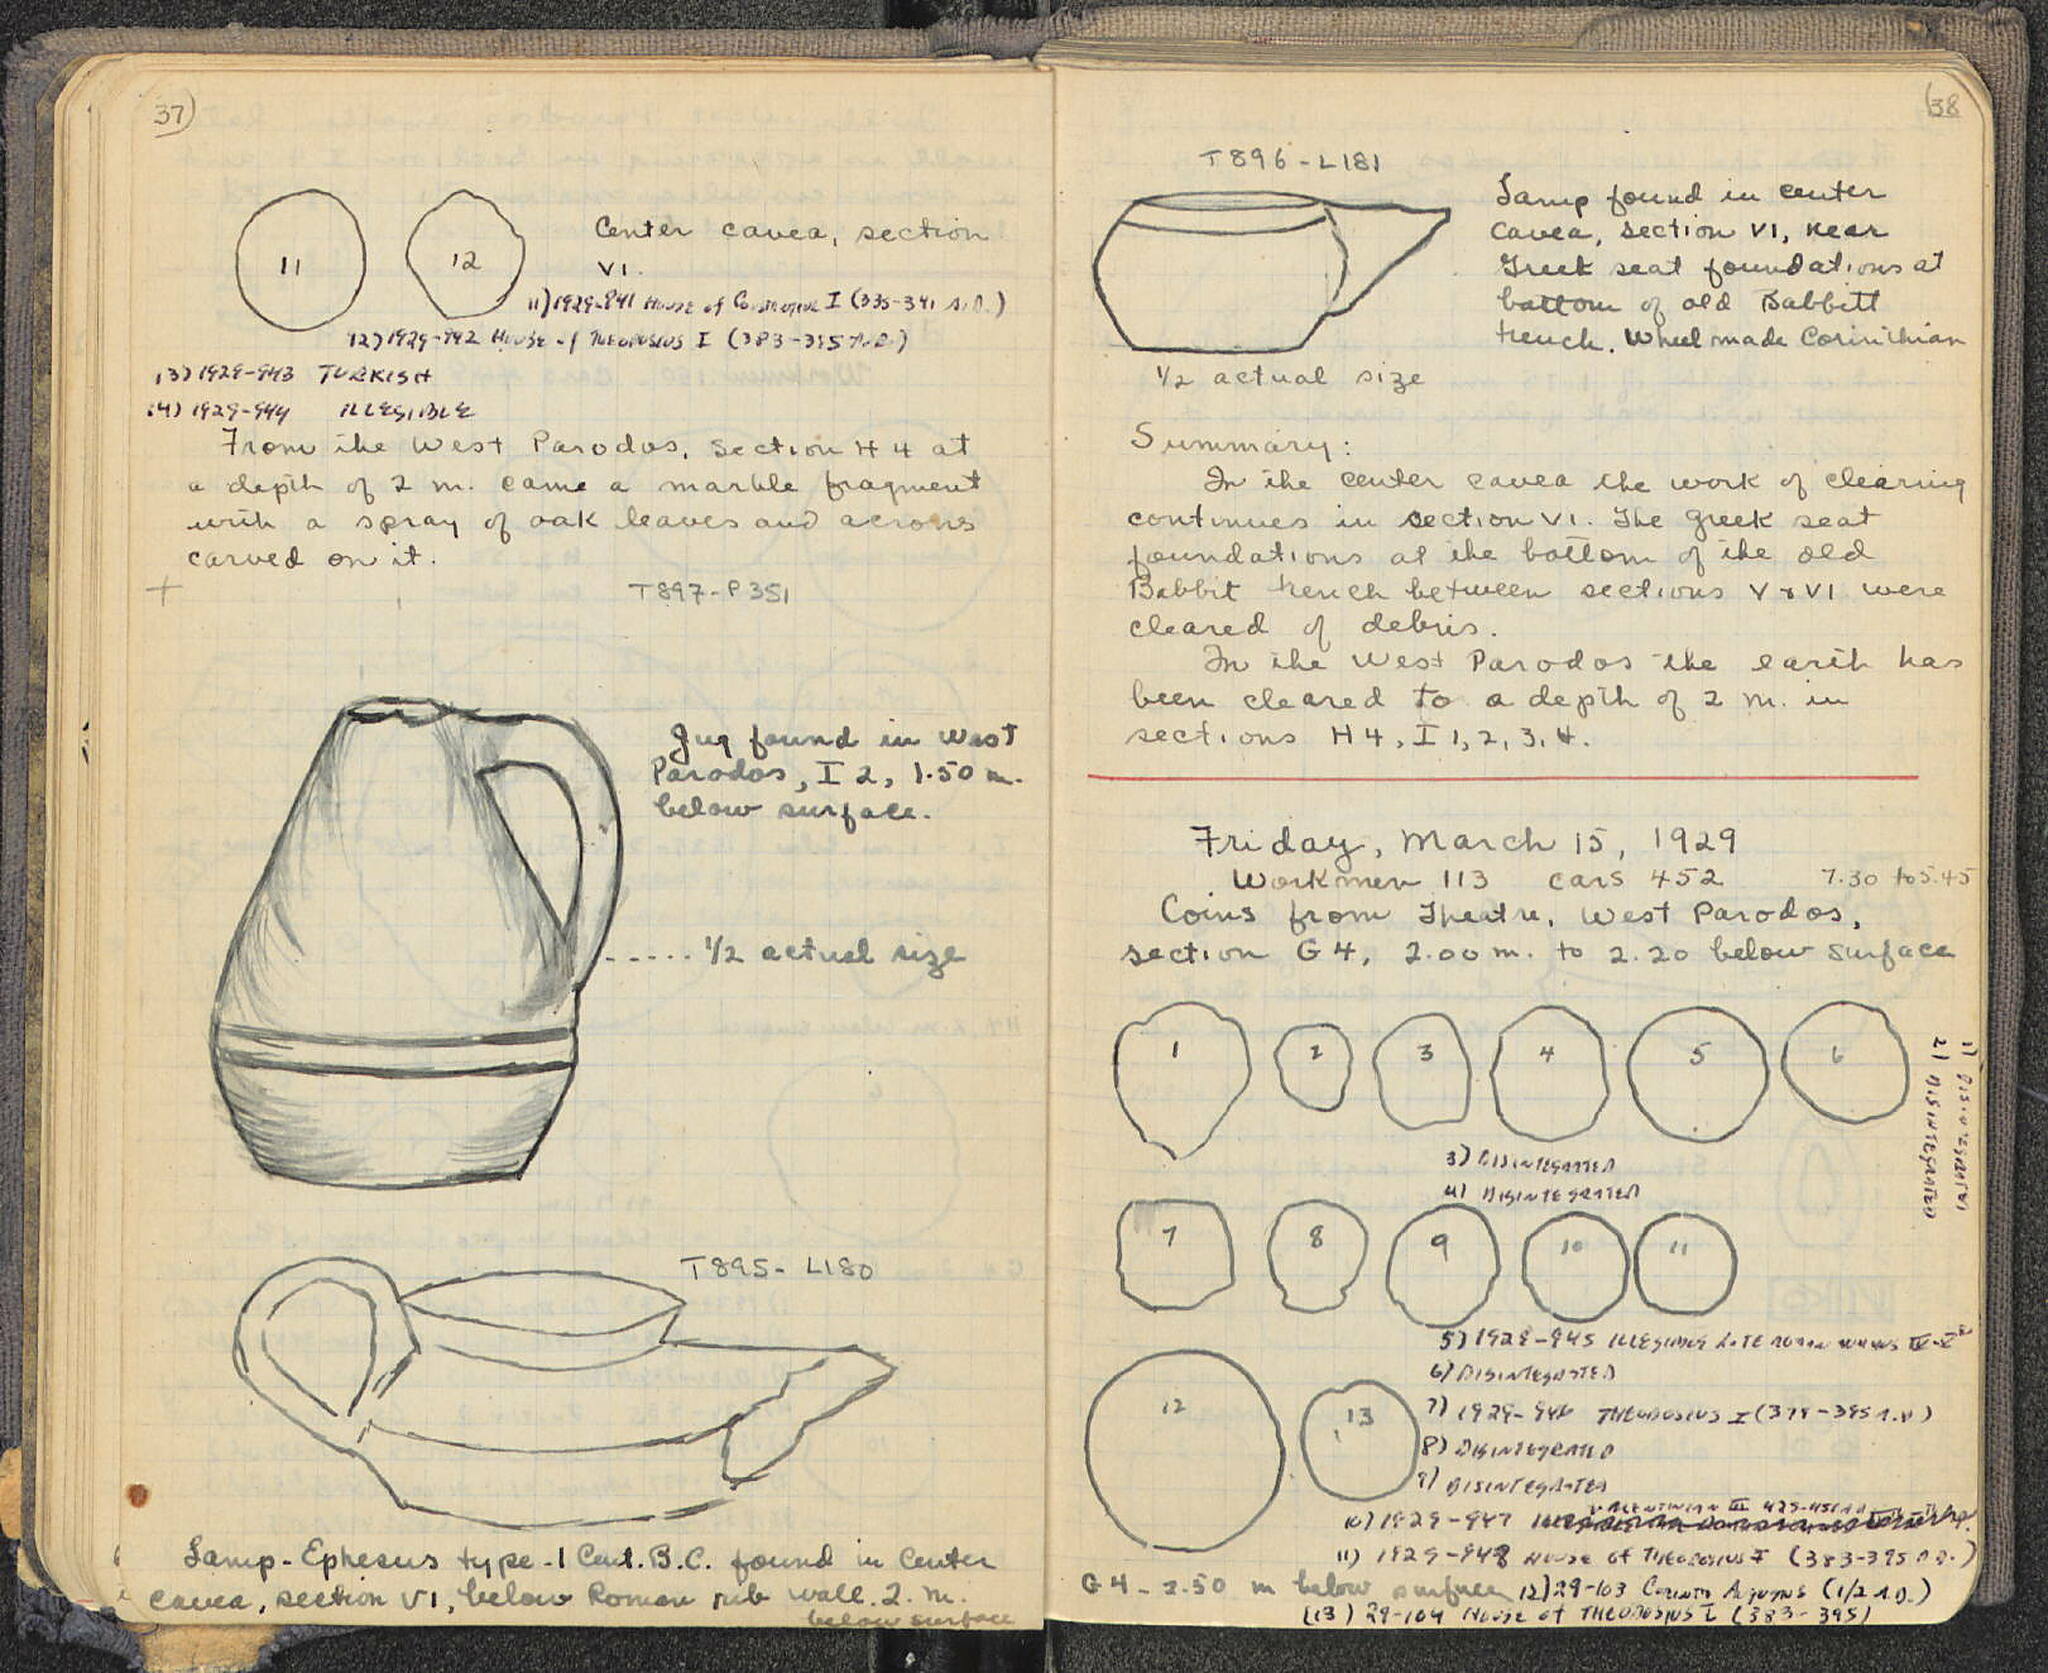 37)
11
12
Center cavea, section
VI.
11) 1929-941 House of Constantine I (335-341 A.D.)
12) 1929-942 House of Theodosius I (383-395 A.D.)
13) 1929-943 TURKISH
14) 1929-944 ILLEGIBLE
From the West Parodos, section H 4 at
a depth of 2 m. came a marble fragment
with a spray of oak leaves and acrons
carved on it.
+
T897-P351
Jug found in West
Parodos, I 2, 1.50 m.
below surface.
-----1/2 actual size
T895- L180
Lamp-Ephesus type-1 Cent. B.C. found in Center
cavea, section VI, below Roman rib wall. 2. m.
below surface
(38
T896-L181
Lamp found in center
cavea, section VI, near
Greek seat foundations at
bottom of old Babbitt
trench. Wheel made Corinthian
1/2 actual size
Summary:
In the center cavea the work of clearing
continues in section VI. The Greek seat
foundations at the bottom of the old
Babbit trench between sections V & VI were
cleared of debris.
In the West Parodos the earth has
been cleared to a depth of 2 m. in
sections H4, I 1, 2, 3, 4.
Friday, March 15, 1929
Workmen 113 cars 452 7.30 to 5.45
Coins from Theatre, West Parodos,
section G 4, 2.00 m. to 2.20 below surface
1
2
3
4
5
6
1) DISINTEGRATED
2) DISINTEGRATED
3) DISINTEGRATED
4) DISINTEGRATED
7
8
9
10
11
5) 1929-945 ILLEGIBLE LATE ROMAN IV-V
6) DISINTEGRATED
12
13
7) 1929-946 THEODOSIUS I (379-395 A.D)
8) DISINTEGRATED
9) DISINTEGRATED
VALENTINIAN III 425-455 A.D
10) 1929-947
11) 1929-948 House of THEODOSIUS I (383-395 A.D.)
G 4 - 2.50 m below surface 12) 29-103 Corinth Augustus (1/2 A.D.)
(13) 29-104 House of THEODOSIUS I (383-395)